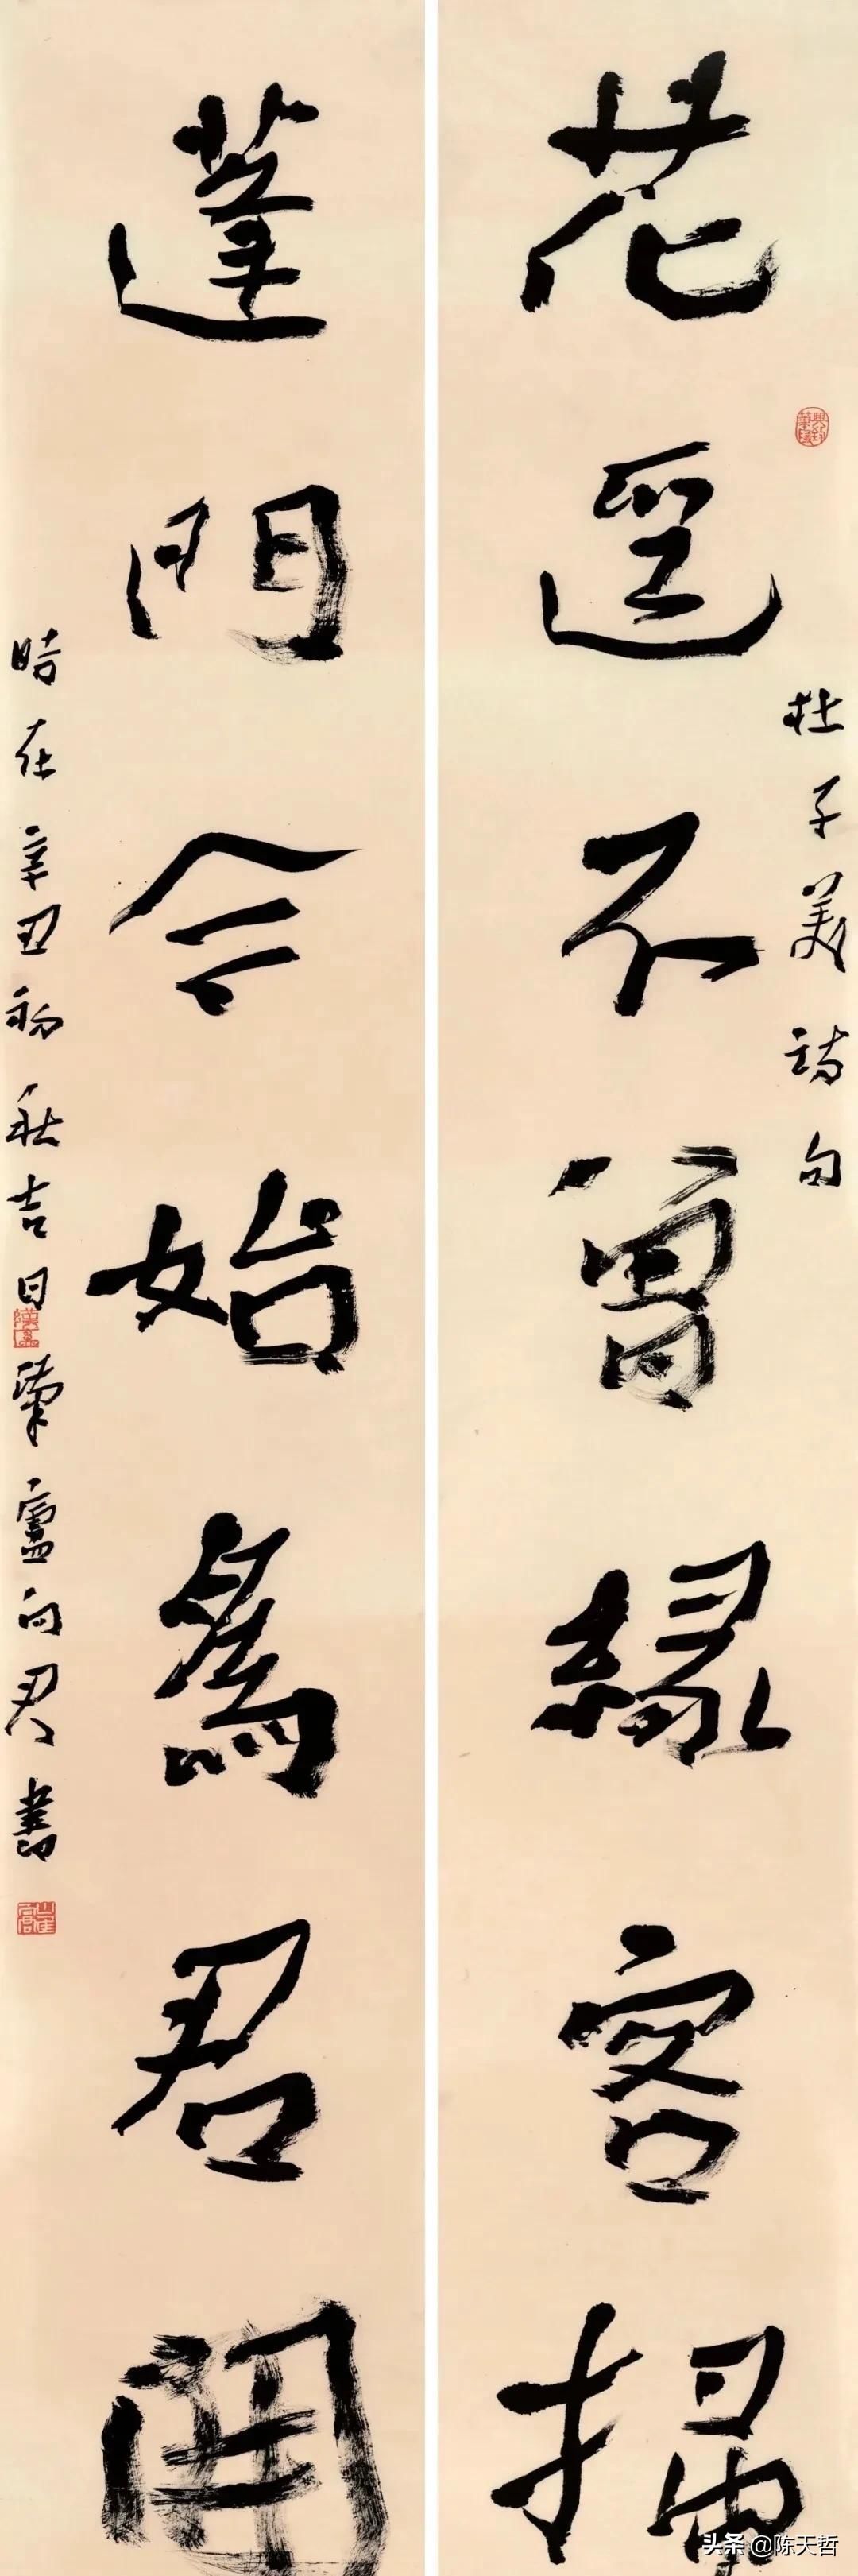 花逕不曾緣客掃
杜子美詩句
蓬門今始爲君開
時在辛丑初秋吉日
書
头条 @陈天哲